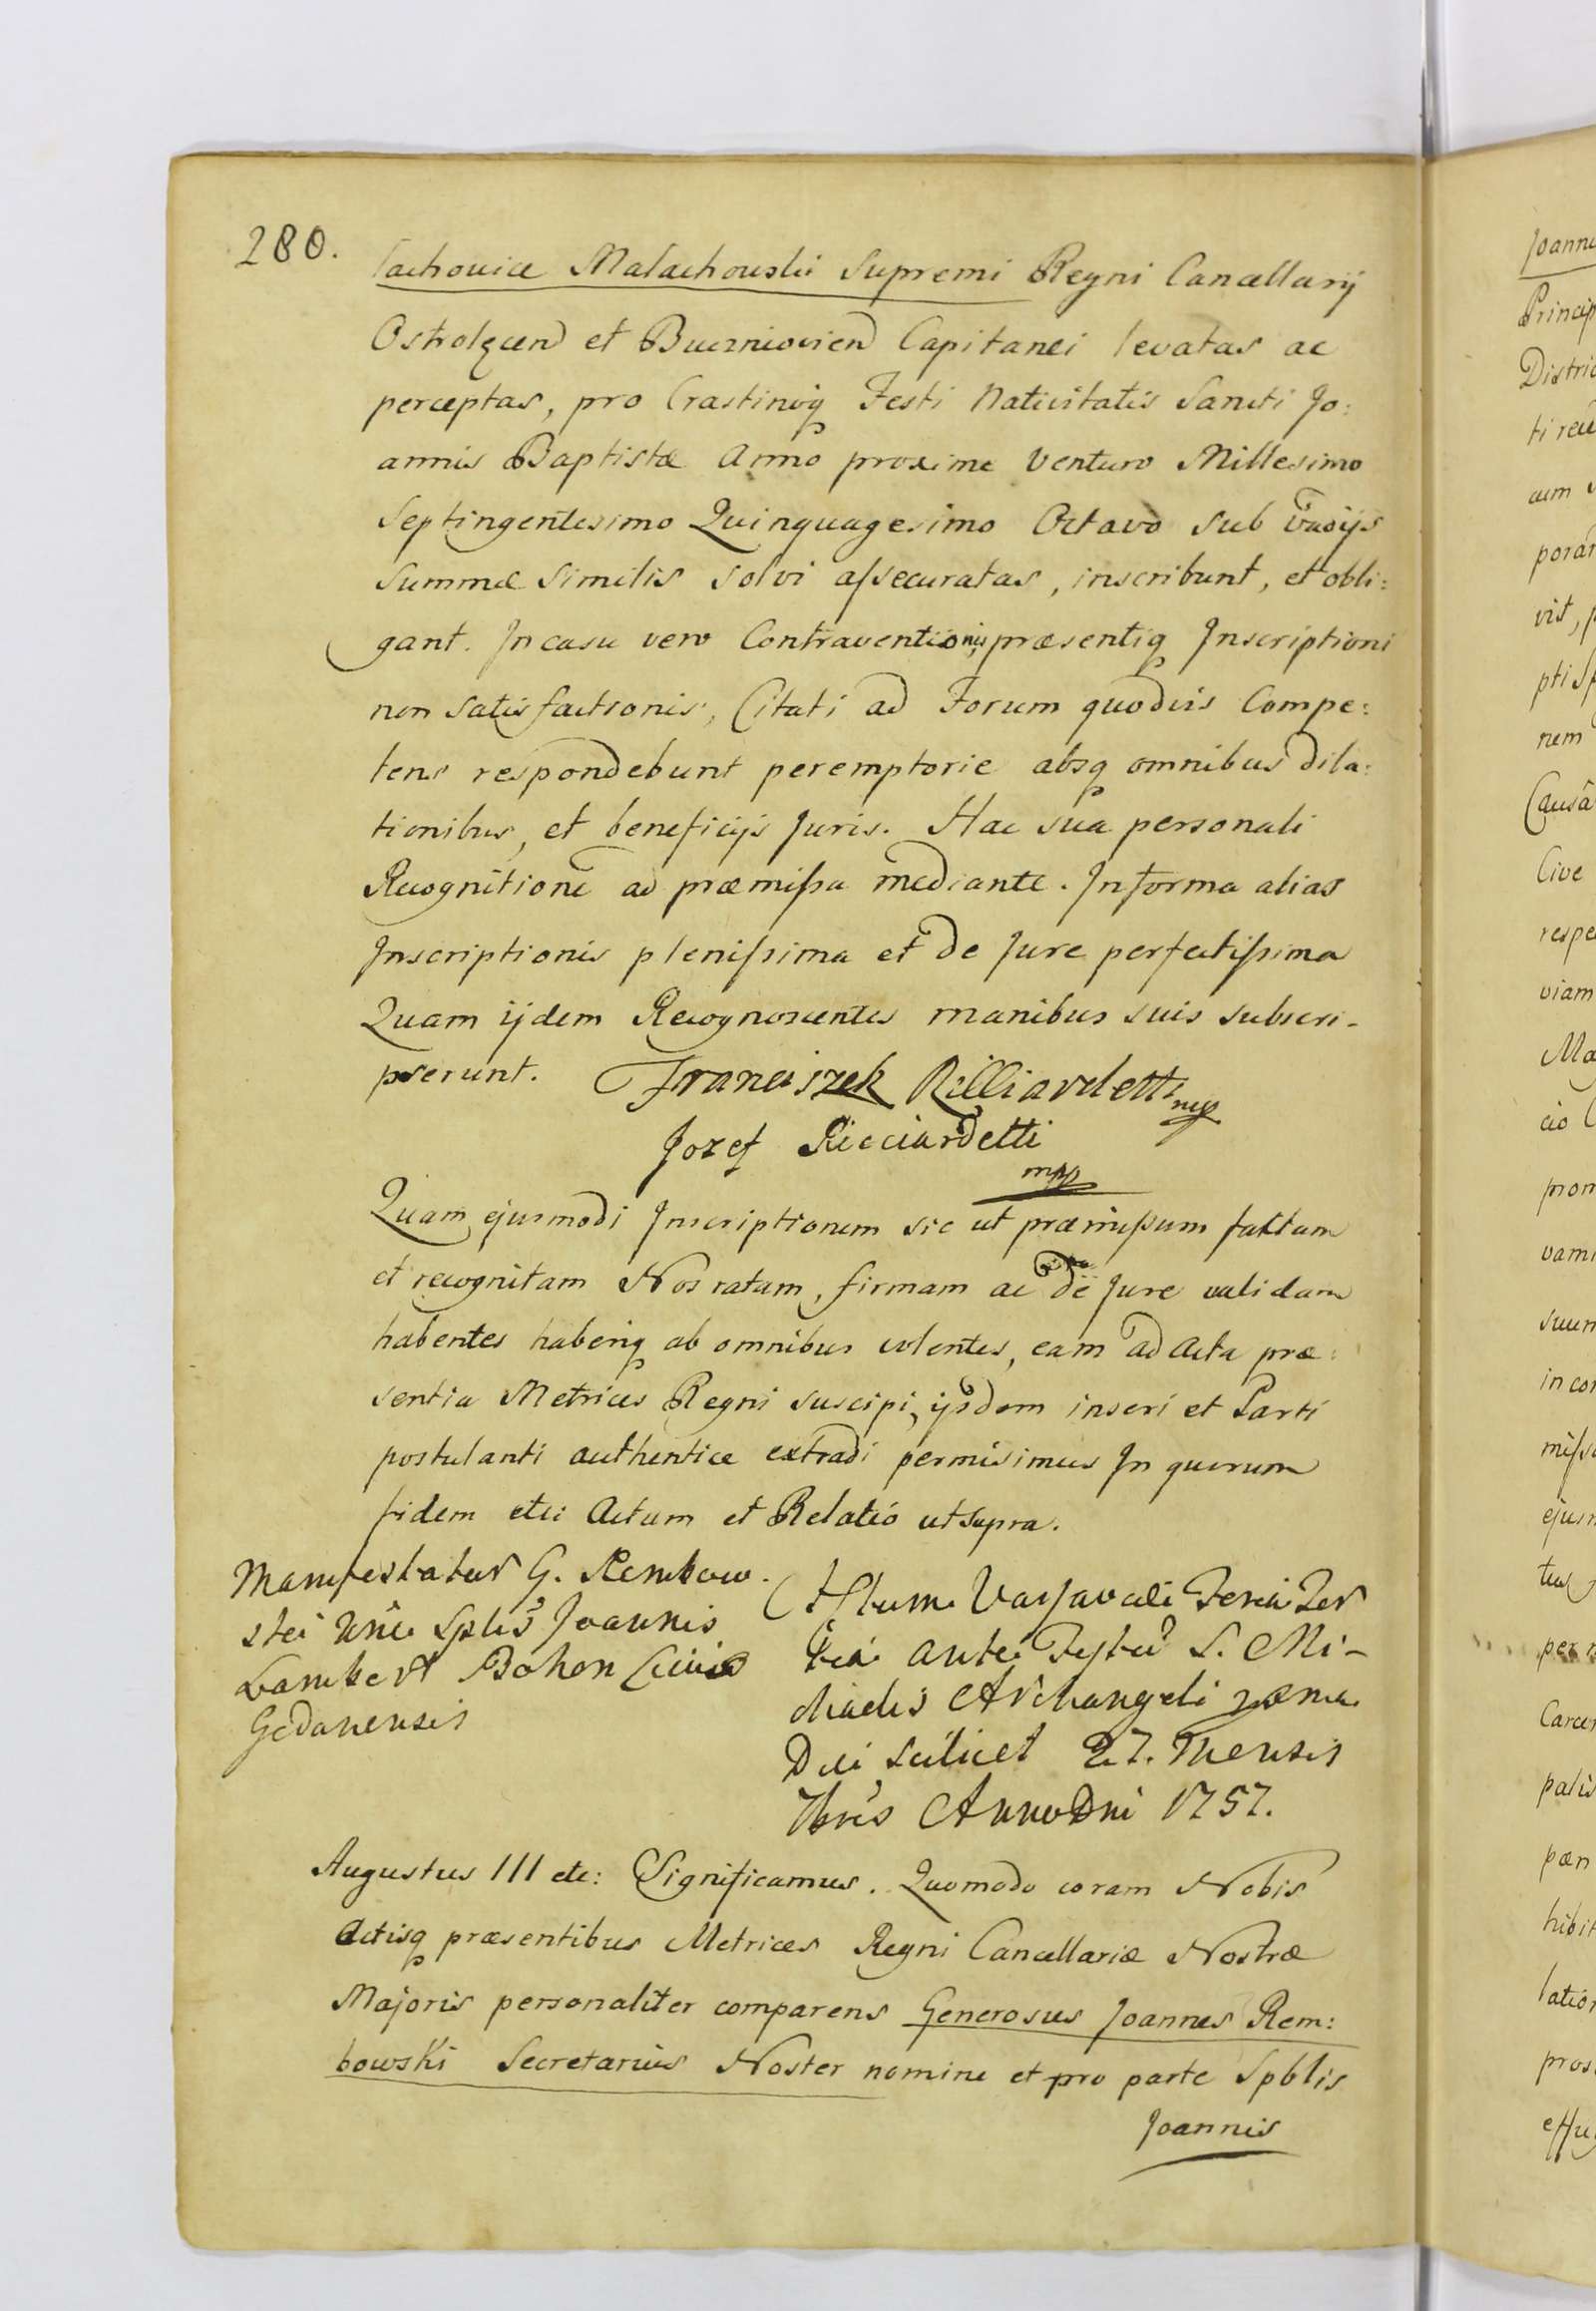 280.
lachovice Malachowski Supremi Regni Cancellarij
Ostrolęcen et Buczniovien Capitanei levatas ac
perceptas, pro Crastinoq Festi Nativitatis Sancti Jo:
annis Baptistæ Anno proxime Venturo Millesimo
Septingentesimo Quinquagesimo Octavo sub vadijs
Summæ Similis solvi assecuratas, inscribunt, et obli:
gant. In casu vero Contraventionis, præsentiq Inscriptioni
non satisfactionis, Citati ad Forum quodvis Compe:
tens respondebunt peremptorie absq omnibus dila:
tionibus, et beneficijs Juris. Hac sua personali
Recognitione ad præmissa mediante. In forma alias
Inscriptionis plenissima et de Jure perfectissima
Quam ijdem Recognoscentes manibus suis subscri-
pserunt. Franciszek Ricciardetti mp
Jozef Ricciardetti
mpp
Quam ejusmodi Inscriptionem sic ut præmissum factam
et recognitam Nos ratam, firmam ac de Jure validam
habentes haberiq ab omnibus volentes, eam ad Acta præ:
sentia Metrices Regni suscipi, ijsdem inseri et Parti
postulanti authentice extradi permisimus In quorum
fidem etc: Actum et Relatio ut supra.
Manifestatur G. Rembow
ski nñe Splis Joannis
Lambert Bohon Civis
Gedanensis
Actum Varsaviæ Feria Ter
tia ante Festu S. Mi-
chaelis Archangeli
Die scilicet 27. Mensis
7bris Anno Dni 1757.
Augustus III etc: Significamus. Quomodo coram Nobis
Actisq præsentibus Metrices Regni Cancellariæ Nostræ
Majoris personaliter comparens Generosus Joannes Rem:
bowski Secretarius Noster nomine et pro parte Spblis
Joannis
Princip
Distric
cum
porar
vit,
nem
Causa
Cive
respe
viam
cio
prom
vami
suum
in con
misso
ejusm
per
Carcer
palis
pæn
hibit
lation
pros
effu